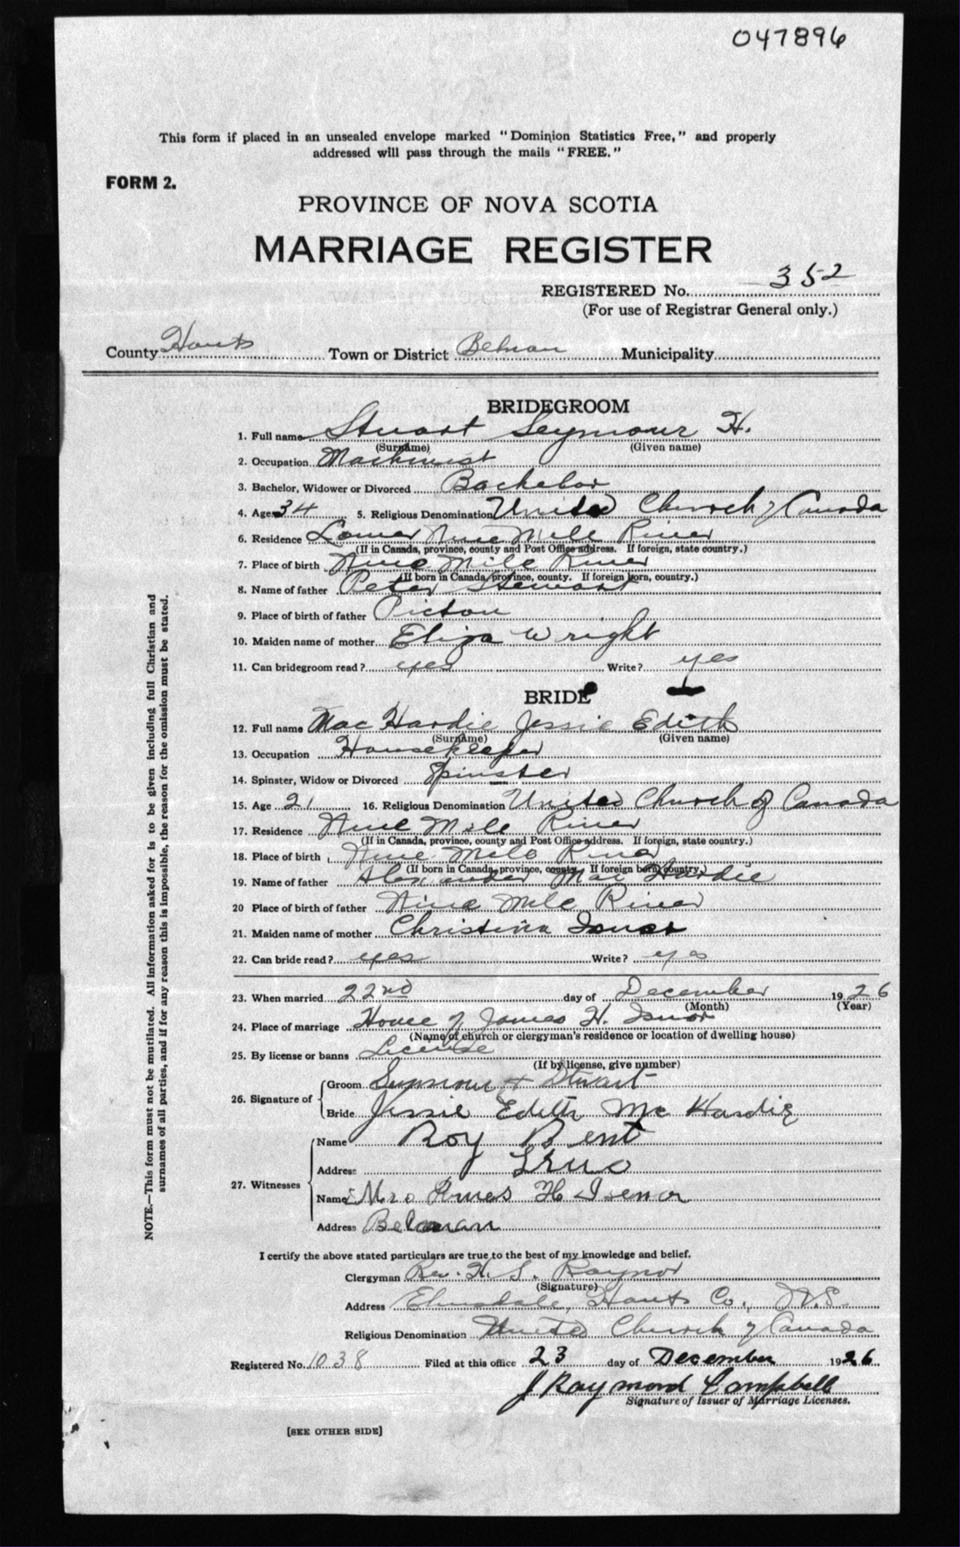 047896
This form if placed in an unsealed envelope marked "Dominion Statistics Free," and properly
addressed will pass through the mails "FREE."
FORM 2.
PROVINCE OF NOVA SCOTIA
MARRIAGE REGISTER
REGISTERED No. 352
(For use of Registrar General only.)
County Hants Town or District Belnan Municipality
BRIDEGROOM
1. Full name Stuart Seymour H.
(Surname) (Given name)
2. Occupation Machinist
3. Bachelor, Widower or Divorced Bachelor
4. Age 34 5. Religious Denomination United Church of Canada
6. Residence Lower Nine Mile River
(If in Canada, province, county and Post Office address. If foreign, state country.)
7. Place of birth Nine Mile River
(If born in Canada, province, county. If foreign born, country.)
8. Name of father Peter Stewart
9. Place of birth of father Pictou
10. Maiden name of mother Eliza Wright
11. Can bridegroom read? yes Write? yes
BRIDE
12. Full name Mac Hardie Jessie Edith
(Surname) (Given name)
13. Occupation Housekeeper
14. Spinster, Widow or Divorced Spinster
15. Age 21 16. Religious Denomination United Church of Canada
17. Residence Nine Mile River
(If in Canada, province, county and Post Office address. If foreign, state country.)
18. Place of birth Nine Mile River
(If born in Canada, province, county. If foreign born, country.)
19. Name of father Alexander Mac Hardie
20 Place of birth of father Nine Mile River
21. Maiden name of mother Christina Isnor
22. Can bride read? yes Write? yes
23. When married 22nd day of December 1926
(Month) (Year)
24. Place of marriage House of James H. Isnor
(Name of church or clergyman's residence or location of dwelling house)
25. By license or banns License
(If by license, give number)
26. Signature of Groom Seymour H Stuart
Bride Jessie Edith Mc Hardie
27. Witnesses Name Roy Bent
Address Truo
Name Mrs James H Isenor
Address Belnan
I certify the above stated particulars are true to the best of my knowledge and belief.
Clergyman Rev. H. S. Raynor
(Signature)
Address Elmsdale, Hants Co., N.S.
Religious Denomination United Church of Canada
Registered No. 1038 Filed at this office 23 day of December 1926
J Raymond Campbell
Signature of Issuer of Marriage Licenses.
[SEE OTHER SIDE]
NOTE.—This form must not be mutilated. All information asked for is to be given including full Christian and
surnames of all parties, and if for any reason this is impossible, the reason for the omission must be stated.